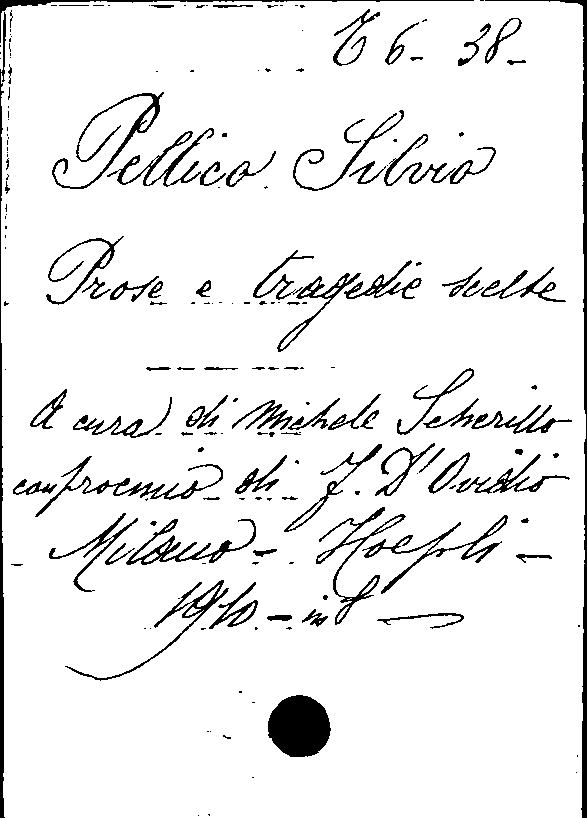 6-38-
Pellico Silvio
Prose e tragedie scelte
A cura di Michele Scherillo
con proemio di F. D'Ovidio
Milano - Hoepli -
1910 - in 8° -